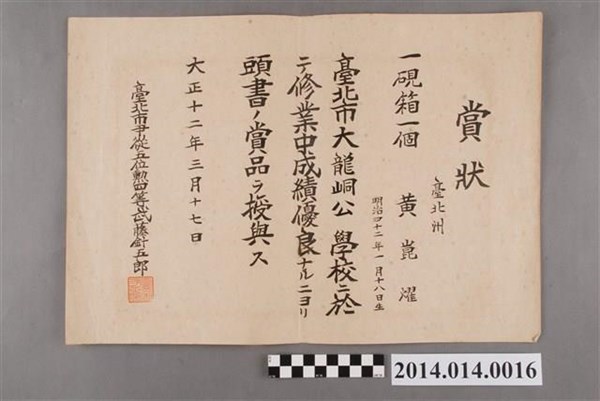 賞狀
臺北州
一硯箱一個 黃崑濯
明治四十二年一月十八日生
臺北市大龍峒公學校ニ於
テ修業中成績優良ナルニヨリ
頭書ノ賞品ヲ授與ス
大正十二年三月十七日
臺北市尹從五位勲四等武藤針五郎
2014.014.0016